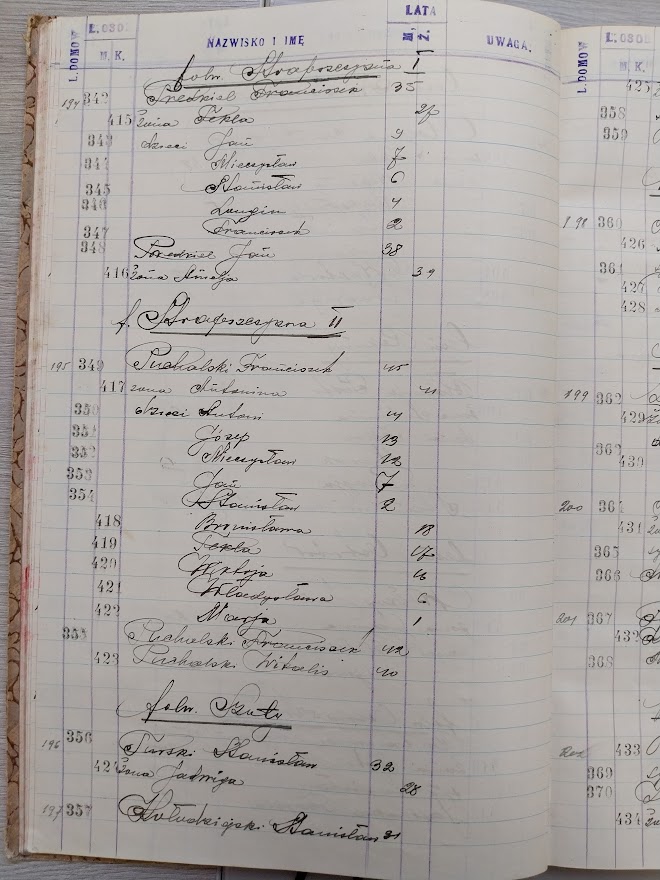 L. DOMÓW L. OSÓB M. K. NAZWISKO I IMĘ LATA M. Ż. UWAGA.
folw. I
194 342 Franciszek 35
415 żona Tekla
343 dzieci Jan 9
344 Mieczysław 7
345 Stanisław 6
346 Longin 4
347 Franciszek 2
348 Jan 38
416 żona Aniela 39
f. II
195 349 Puchalski Franciszek 45
417 żona Antonina 41
350 dzieci Antoni 14
351 Józep 13
352 Mieczysław 12
353 Jan 7
354 Stanisław 2
418 Bronisława 18
419 Tekla 17
420
421 Władysława 6
422 Marja 1
355 Puchalski Franciszek 42
423 Puchalski Witalis 40
folw. Szuty
356
196 Turski Stanisław 32
424 żona Jadwiga 28
197 357 Stanisław 31
L. DOMÓW L. OSÓB M. K.
425
358
359
198 360
426
361
427
428
199 362
429
363
439
200 364
431
365
366
201 367
432
368
202 433
369
370
434